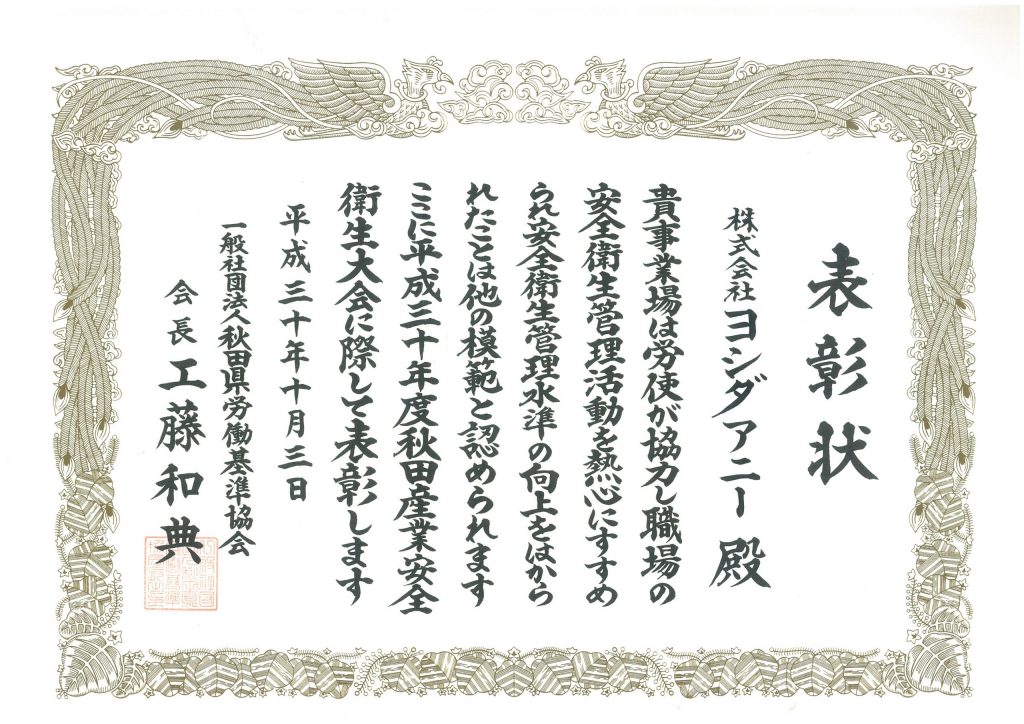 表彰状
株式会社ヨシダアニー 殿
貴事業場は労使が協力し職場の
安全衛生管理活動を熱心にすすめ
られ安全衛生管理水準の向上をはから
れたことは他の模範と認められます
ここに平成三十年度秋田産業安全
衛生大会に際して表彰します
平成三十年十月三日
一般社団法人秋田県労働基準協会
会長 工藤和典